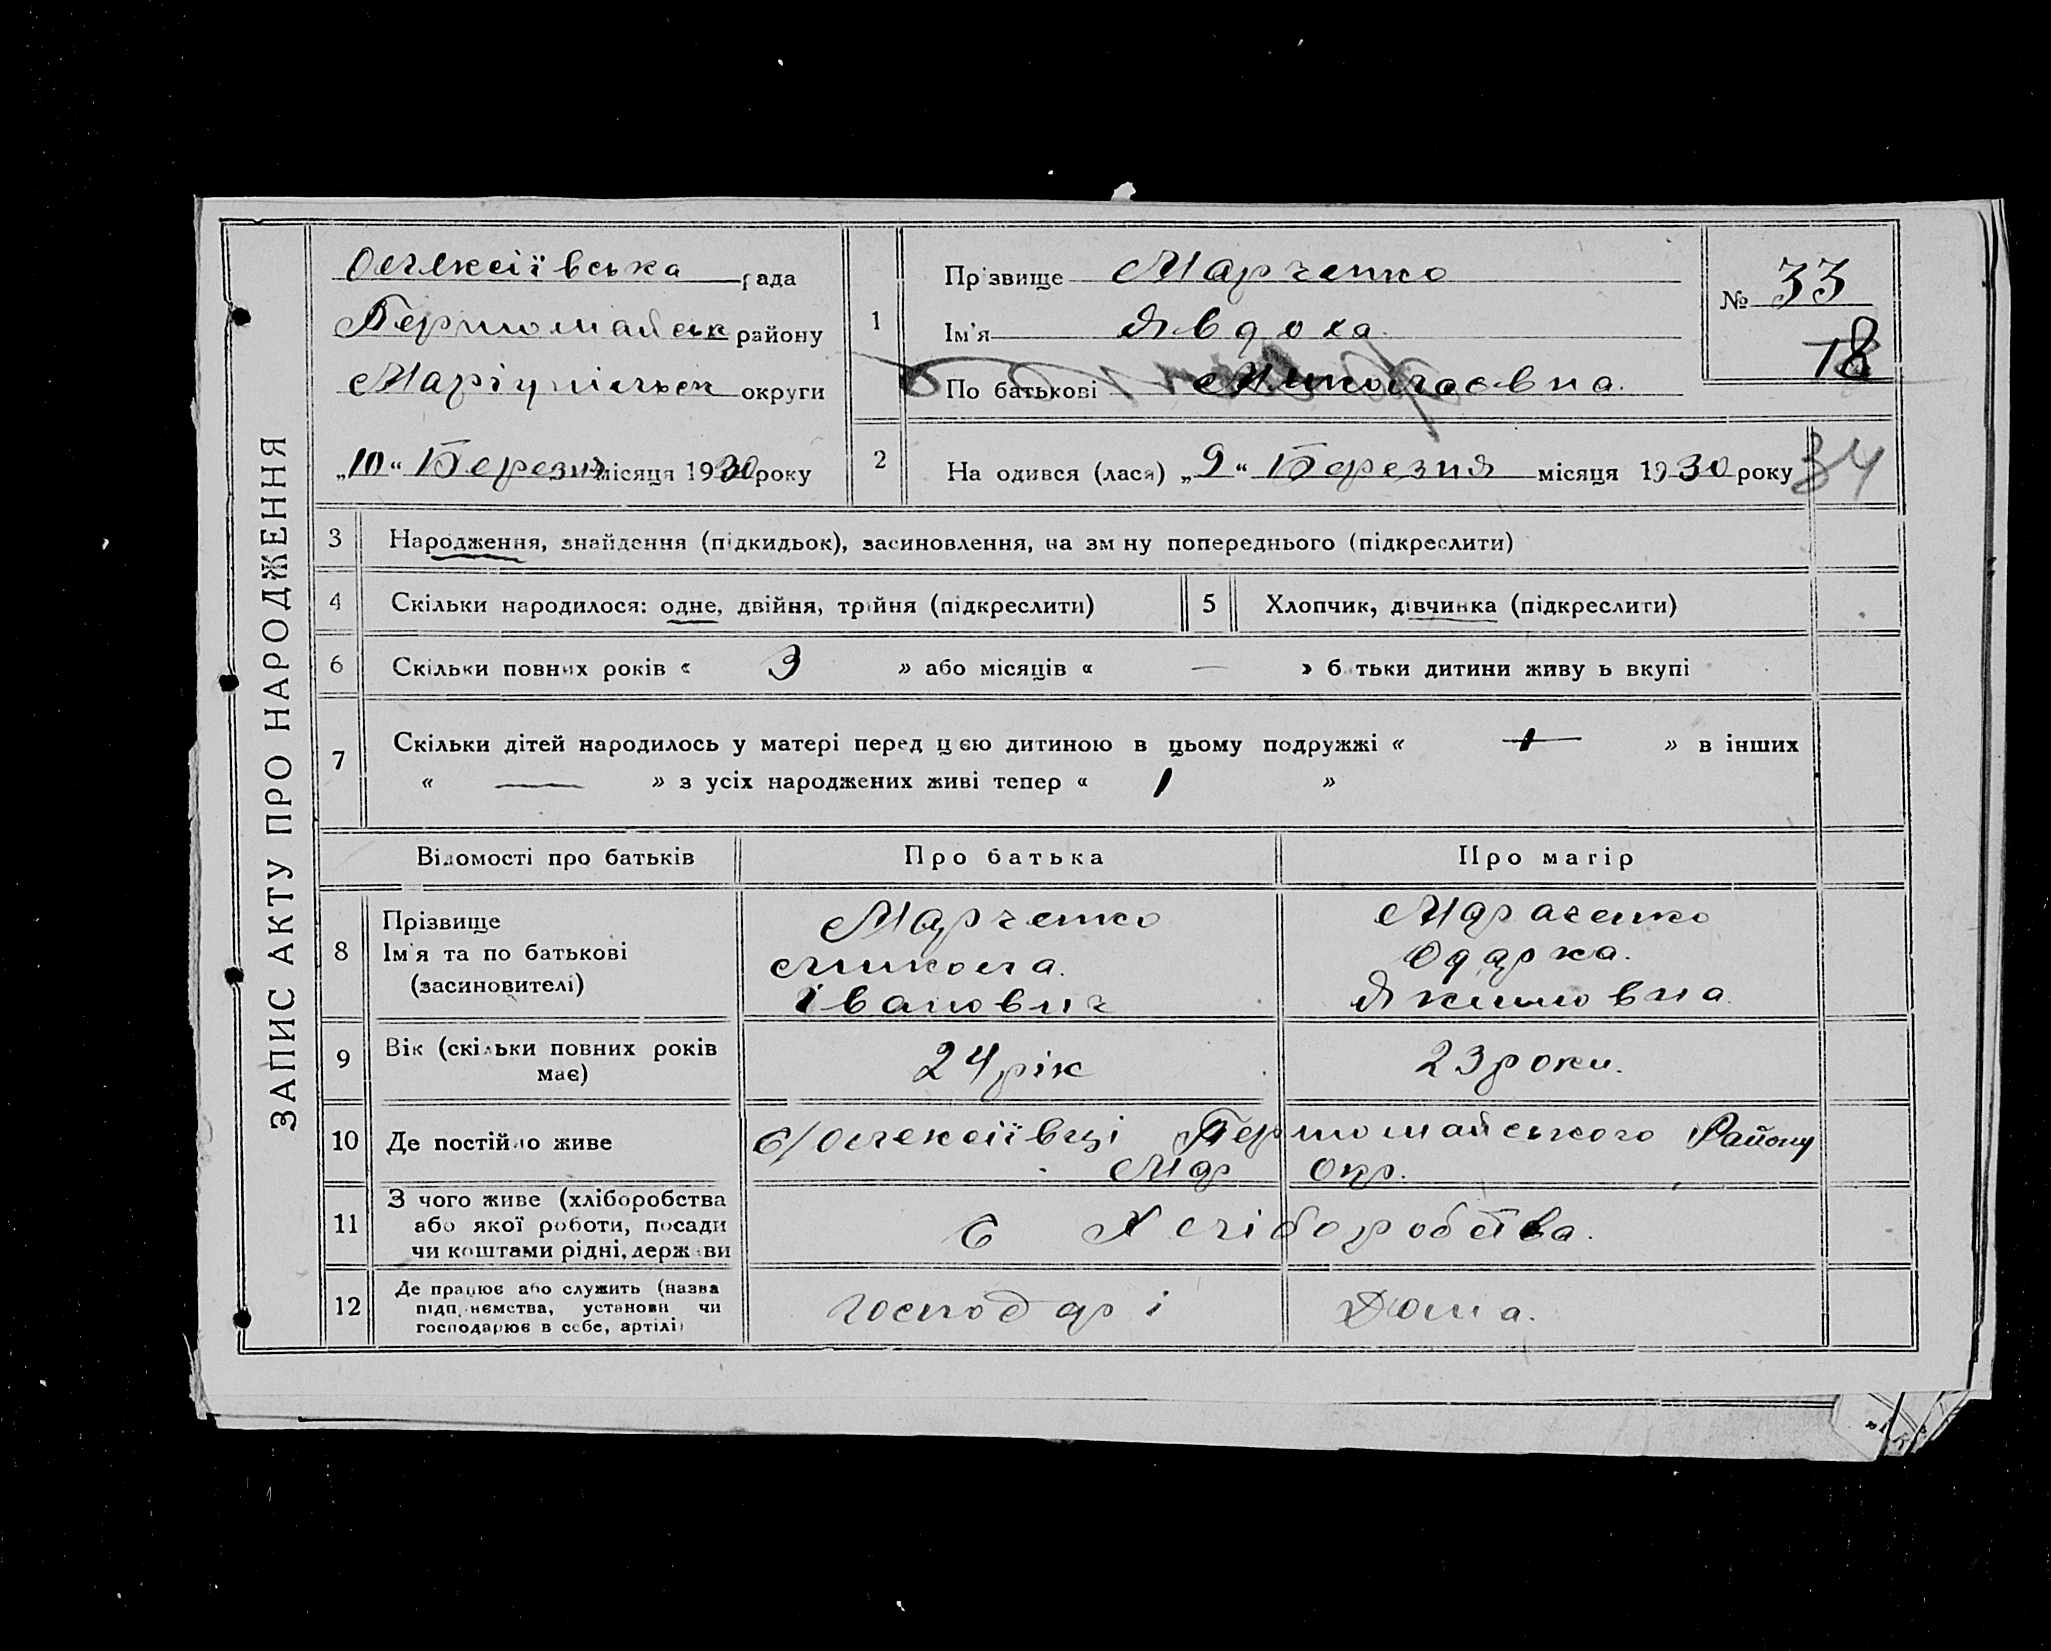 ЗАПИС АКТУ ПРО НАРОДЖЕННЯ
Олексіївська рада
Першомайськ району
Маріупільск округи
„10“ Березня місяця 1930 року
1
Прізвище Марченко
Ім'я Явдоха.
По батькові Миколаєвна.
№ 33
18
2
На одився (лася) „9“ Березня місяця 1930 року
34
3 Народження, знайдення (підкидьок), засиновлення, на зм ну попереднього (підкреслити)
4 Скільки народилося: одне, двійня, трійня (підкреслити) 5 Хлопчик, дівчинка (підкреслити)
6 Скільки повних років « 3 » або місяців « — » б тьки дитини живу ь вкупі
7 Скільки дітей народилось у матері перед цією дитиною в цьому подружжі « 1 » в інших
« — » з усіх народжених живі тепер « 1 »
Відомості про батьків Про батька Про матір
8 Прізвище
Ім'я та по батькові
(засиновителі)
Марченко
Микола.
Іванович
Марченко
Одарка.
Якимовна.
9 Вік (скільки повних років
має)
24 рік 23 роки.
10 Де постійно живе
С/Олексіївці Першомайського Району
Мар Окр.
11 З чого живе (хліборобства
або якої роботи, посади
чи коштами рідні, держави
С Хліборобства.
12 Де працює або служить (назва
підп иємства, установи чи
господарює в себе, артілі)
господарі Дома.